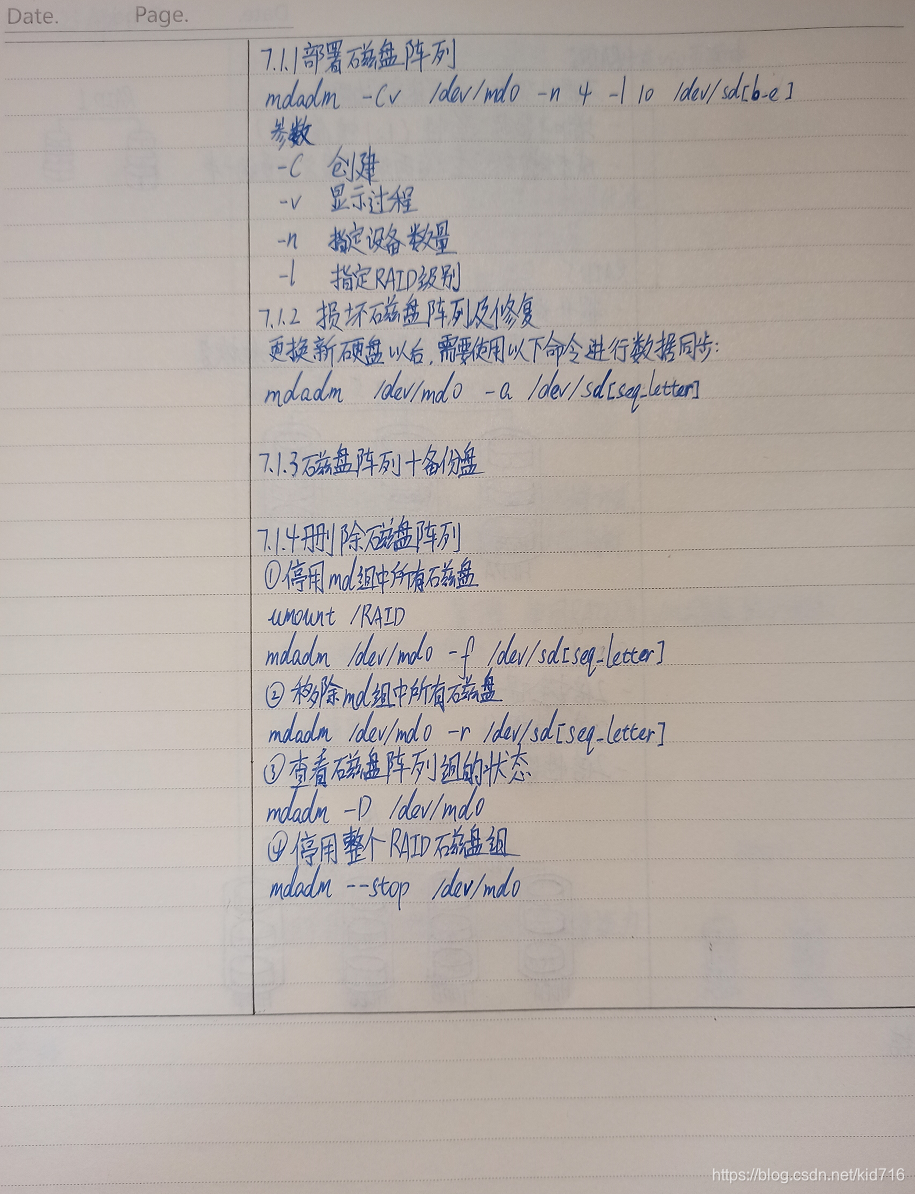 Date. Page.
7.1.1 部署磁盘阵列
mdadm -Cv /dev/md0 -n 4 -l 10 /dev/sd[b-e]
参数
-C 创建
-v 显示过程
-n 指定设备数量
-l 指定RAID级别
7.1.2 损坏磁盘阵列及修复
更换新硬盘以后,需要使用以下命令进行数据同步:
mdadm /dev/md0 -a /dev/sd[seq_letter]
7.1.3 磁盘阵列+备份盘
7.1.4 删除磁盘阵列
①停用md组中所有磁盘
umount /RAID
mdadm /dev/md0 -f /dev/sd[seq_letter]
②移除md组中所有磁盘
mdadm /dev/md0 -r /dev/sd[seq_letter]
③查看磁盘阵列组的状态
mdadm -D /dev/md0
④停用整个RAID磁盘组
mdadm --stop /dev/md0
https://blog.csdn.net/kid716